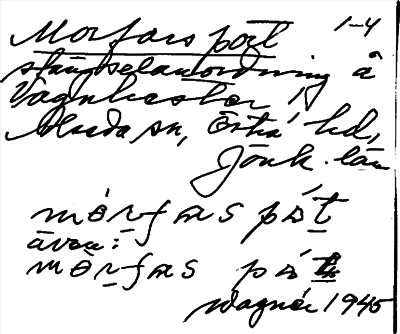 Morfars port 1-4
stängselanordning å
Vagnhester i
Almesåsn, Östra hd,
Jönk. län
mòrfas pót
även:
mòrfas pót
Wagnér 1945